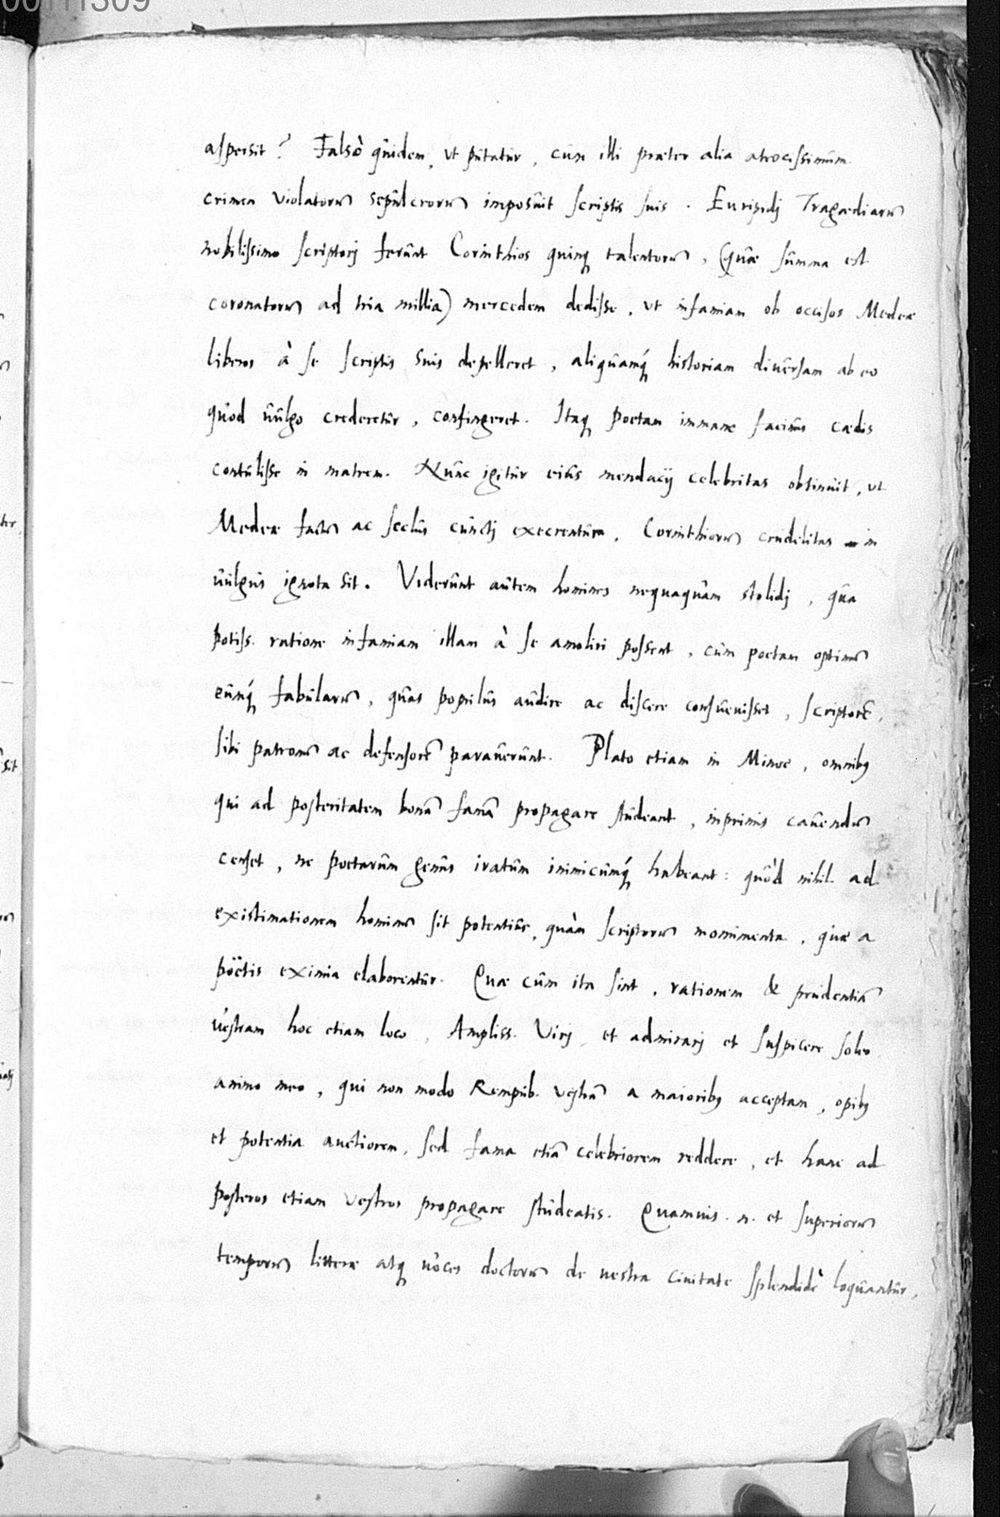 00111309
aspersit? Falsò quidem, ut putatur, cum illi præter alia atrocissimum
crimen violatorum sepulcrorum imposuit scriptis suis. Euripidj Tragœdiarum
nobilissimo scriptorj ferunt Corinthios quinq talentorum, (quæ summa est
coronatorum ad tria millia) mercedem dedisse, ut infamiam ob occisos Medeæ
liberos à se scriptis suis depelleret, aliquamq́ historiam diuersam ab eo
quod uulgo crederetur, confingeret. Itaq poetam immane facinus cædis
contulisse in matrem. Nunc igitur eius mendacij celebritas obtinuit, ut
Medeæ factum ac scelus cunctj execrentur, Corinthiorum crudelitas in
uulgus ignota sit. Viderunt autem homines nequaquam stolidj, qua
potiss. ratione infamiam illam à se amoliri possent, cum poetam optimum
eumq́ fabularum, quas populus audire ac discere consueuisset, scriptorē,
sibi patronum ac defensorē parauerunt. Plato etiam in Minoe, omnibus
qui ad posteritatem bonā famā propagare student, inprimis cauendum
censet, ne poetarum genus iratum inimicumq́ habeant: quòd nihil ad
existimationem hominum sit potentius, quàm scriptorum monimenta, quæ a
poëtis eximia elaborentur. Quæ cum ita sint, rationem & prudentiā
uestram hoc etiam loco, Ampliss. Virj, et admirarj et suspicere soleo
animo meo, qui non modo Rempub. vestrā a maioribus acceptam, opibus
et potentia auctiorem, sed fama etiā celebriorem reddere, et hanc ad
posteros etiam vestros propagare studeatis. Quamuis .n. et superiorum
temporum litteræ atq uoces doctorum de uestra ciuitate splendidè loquantur,